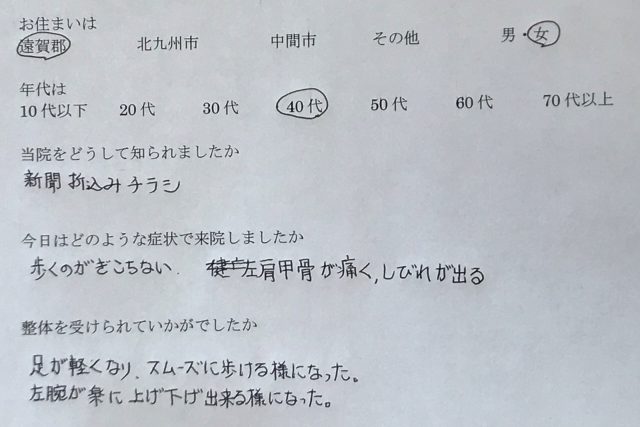 お住まいは
遠賀郡 北九州市 中間市 その他 男・女
年代は
10代以下 20代 30代 40代 50代 60代 70代以上
当院をどうして知られましたか
新聞折込みチラシ
今日はどのような症状で来院しましたか
歩くのがぎこちない. 左肩甲骨が痛く,しびれが出る
整体を受けられていかがでしたか
足が軽くなり、スムーズに歩ける様になった。
左腕が楽に上げ下げ出来る様になった。